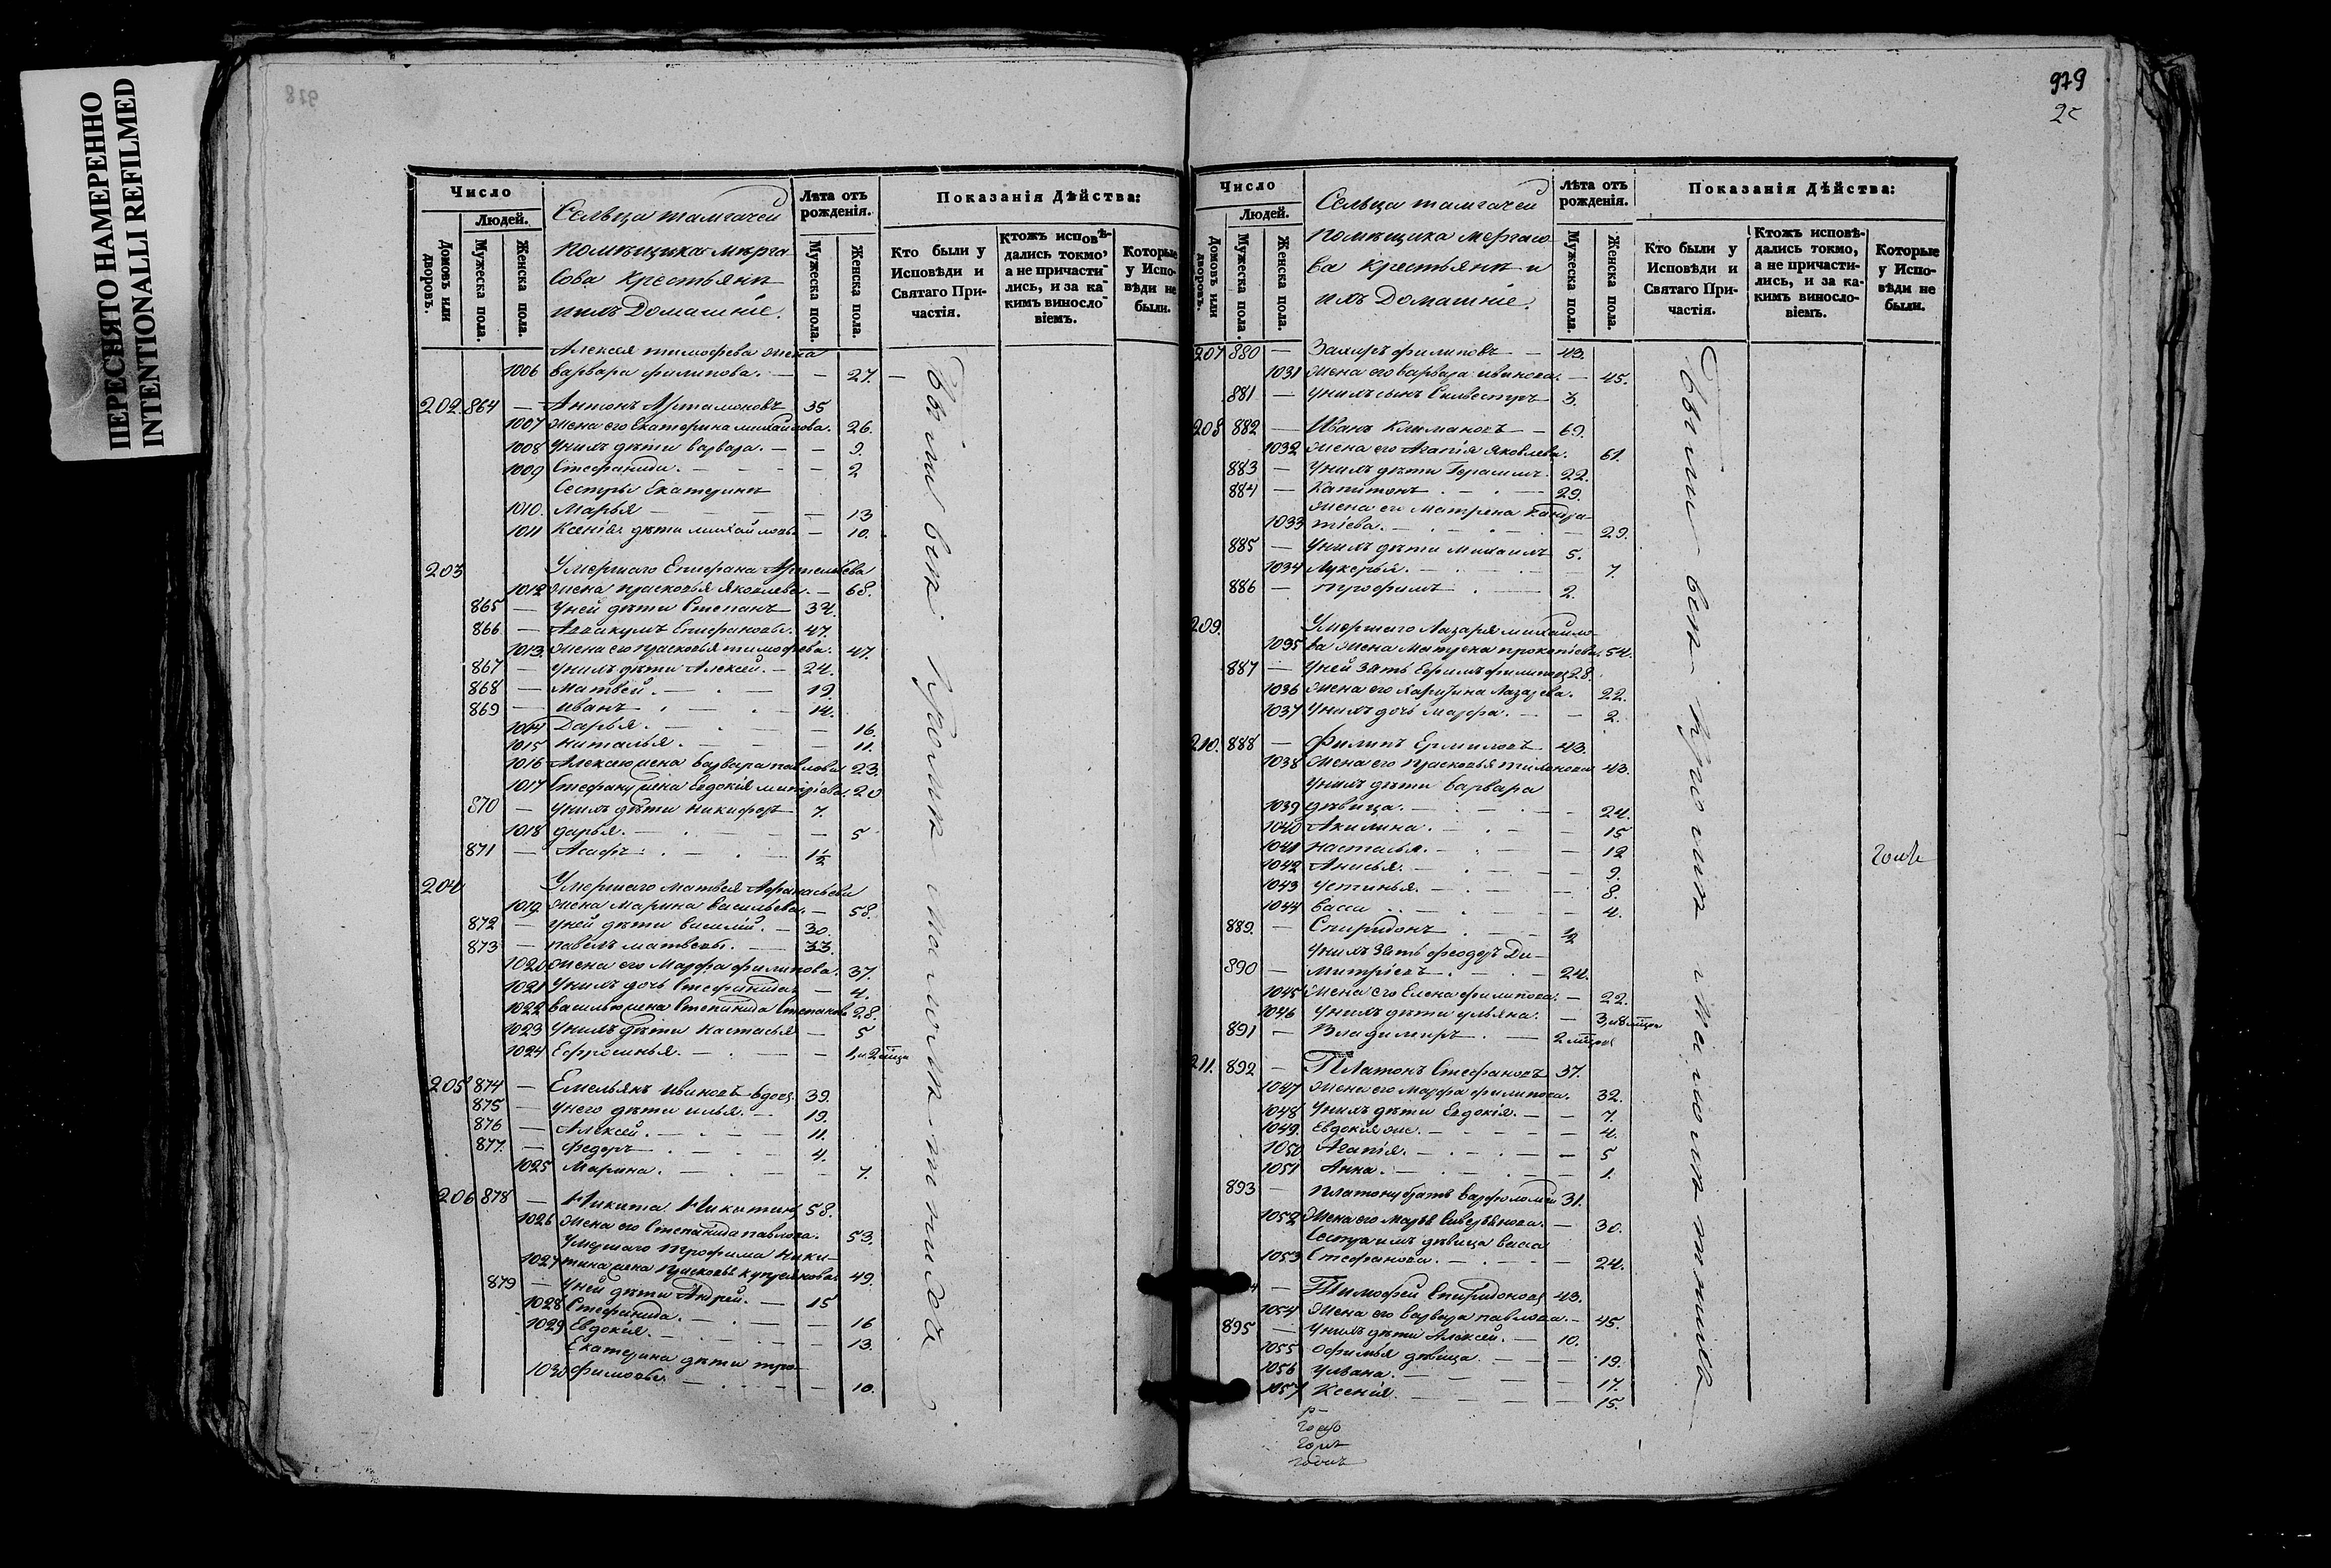 ПЕРЕСНЯТО НАМЕРЕННО
INTENTIONALLI REFILMED
978
Число
Людей.
Домовъ или дворовъ.
Мужеска пола.
Женска пола.
Сельца тамгачей
помѣщика мерга
сова крестьяне
и ихъ домашніе.
Лѣта отъ рожденія.
Мужеска пола.
Женска пола.
Показанія Дѣйства:
Кто были у Исповѣди и Святаго Причастія.
Ктожъ исповѣдались токмо, а не причастились, и за какимъ винословіемъ.
Которые у Исповѣди не были.
Алексея тимофева жена
1006 варвара филипова. — — 27.
202. 864 — Антонъ Артамоновъ 35
1007 жена его Екатерина михайлова. 26.
1008 У нихъ дѣти варвара. — — 9.
1009 Стефанида. — — — 2
Сестры Екатерины
1010. Марья — — — 13
1011 Ксенія дѣти михайловы — 10.
203 Умершаго Епифана
1012 жена прасковья Яковлева. — 68.
865 — У ней дѣти Степанъ — 34.
866 — Аввакумъ Епифановы. 47.
1013. жена его прасковья тимофева. 47.
867 — У нихъ дѣти Алексей. — 24.
868 — матвей. — 19.
869 — иванъ — 14.
1014 Дарья. — — 16.
1015 наталья. — — 11.
1016 Алексею жена варвара павлова 23.
1017 Стефану жена Евдокія 20
870 — У нихъ дѣти никифоръ 7.
1018 дарья. — — 5
871 — Асафъ. — 1½
204 Умершаго матвея Афанасьева
1019. жена Марина васильева. — 58.
872 — У ней дѣти василій. — 30.
873 — павелъ матвеевы. — 33.
1020 жена его Марфа филипова. 37.
1021 У нихъ дочь Стефанида — 4.
1022 василью жена степанида Степанова 28.
1023 У нихъ дѣти настасья — 5
1024 Ефросинья. — — 1, и 2 мѣца
205 874 — Емельянъ ивановъ вдовъ. 39.
875 — У него дѣти илья. — 19.
876 — Алексей. — 11.
877. — федоръ — 4.
1025 Марина. — — 7.
206 878 — Никита Никитинъ 58.
1026 жена его Степанида павлова. 53.
умершаго трофима ники-
1027 тина жена прасковья купреянова. 49.
879 — У ней дѣти Андрей. — 15
1028 Стефанида. — — 16
1029 Евдокія. — — 13.
Екатерина дѣти тро-
1030 фимовы. — — 10.
Были вси кромѣ малолѣтнихъ.
979
Число
Людей.
Домовъ или дворовъ.
Мужеска пола.
Женска пола.
Сельца тамгачей
помѣщика мергасо
ва крестьяне и
ихъ домашніе.
Лѣта отъ рожденія.
Мужеска пола.
Женска пола.
Показанія Дѣйства:
Кто были у Исповѣди и Святаго Причастія.
Ктожъ исповѣдались токмо, а не причастились, и за какимъ винословіемъ.
Которые у Исповѣди не были.
207 880 — Захаръ филиповъ — 43.
1031 жена его варвара иванова. — 45.
881 — У нихъ сынъ Сильвестръ 3.
208 882 — Иванъ Климановъ — 69.
1032 жена его Агапія Яковлева. 61.
883 — У нихъ дѣти Герасимъ. 22.
884 — Капитонъ — 29.
жена его Матрена
1033 29.
885 — У нихъ дѣти михаилъ 5.
1034 Лукерья. — 7.
886 — трофимъ — 2.
209. Умершаго Лазаря михайло-
1035 ва жена Матрена прокопіева. 54.
887 — У ней зять Ефимъ филиповъ 28.
1036 жена его Харитина Лазарева. 22.
1037 У нихъ дочь Марфа. — — 2.
210. 888 — Филипъ Ермиловъ 43.
1038 жена его прасковья 43.
У нихъ дѣти варвара
1039 дѣвица. — — 24.
1040 Акилина. — — 15
1041 настасья. — — 12
1042 Анисья. — — 9.
1043 устинья. — — 8.
1044 васса — — 4.
889. — Спиридонъ — ½
У нихъ зять феодоръ Ди-
890 — митріевъ — 24.
1045 жена его Елена филипова. — 22.
1046 У нихъ дѣти ульяна. — 3, и 8 мѣцов
891 — Владимиръ. — 2 мѣцов
211. 892 — Платонъ Стефановъ 37.
1047 жена его Марфа филипова. 32.
1048 У нихъ дѣти Евдокія. — — 7.
1049. Евдокія же. — — 4.
1050 Агапія. — — 5
1051 Анна. — — 1.
893 — платону братъ варфоломей 31.
1052 жена его марья — 30.
Сестра имъ дѣвица васса
1053 Стефанова. — — 24.
— Тимофей Спиридоновъ 43.
1054 жена его варвара павлова. — 45.
895 — У нихъ дѣти Алексей. — 10.
1055 офимья дѣвица. — — 19.
1056 ульяна. — — 17.
1057 Ксенія. — — 15.
Были вси кромѣ малолѣтнихъ